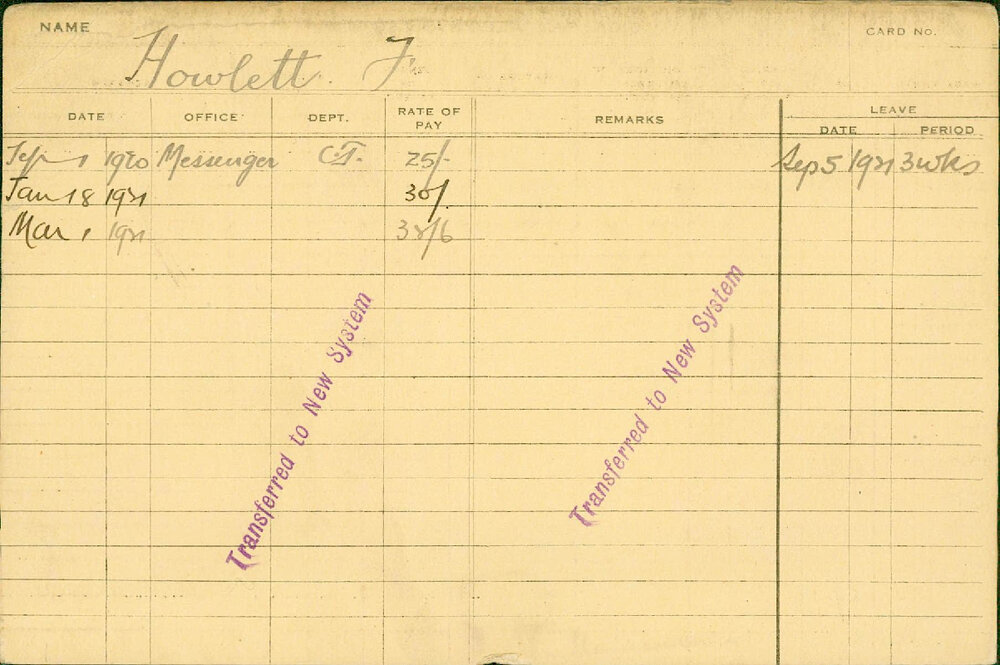 NAME CARD NO.
Howlett. F.
DATE OFFICE DEPT. RATE OF PAY REMARKS LEAVE
DATE PERIOD
Sep 1 1920 Messenger C.T. 25/- Sep 5 1921 3 wks
Jan 18 1921 30/.
Mar 1 1921
Transferred to New System
Transferred to New System